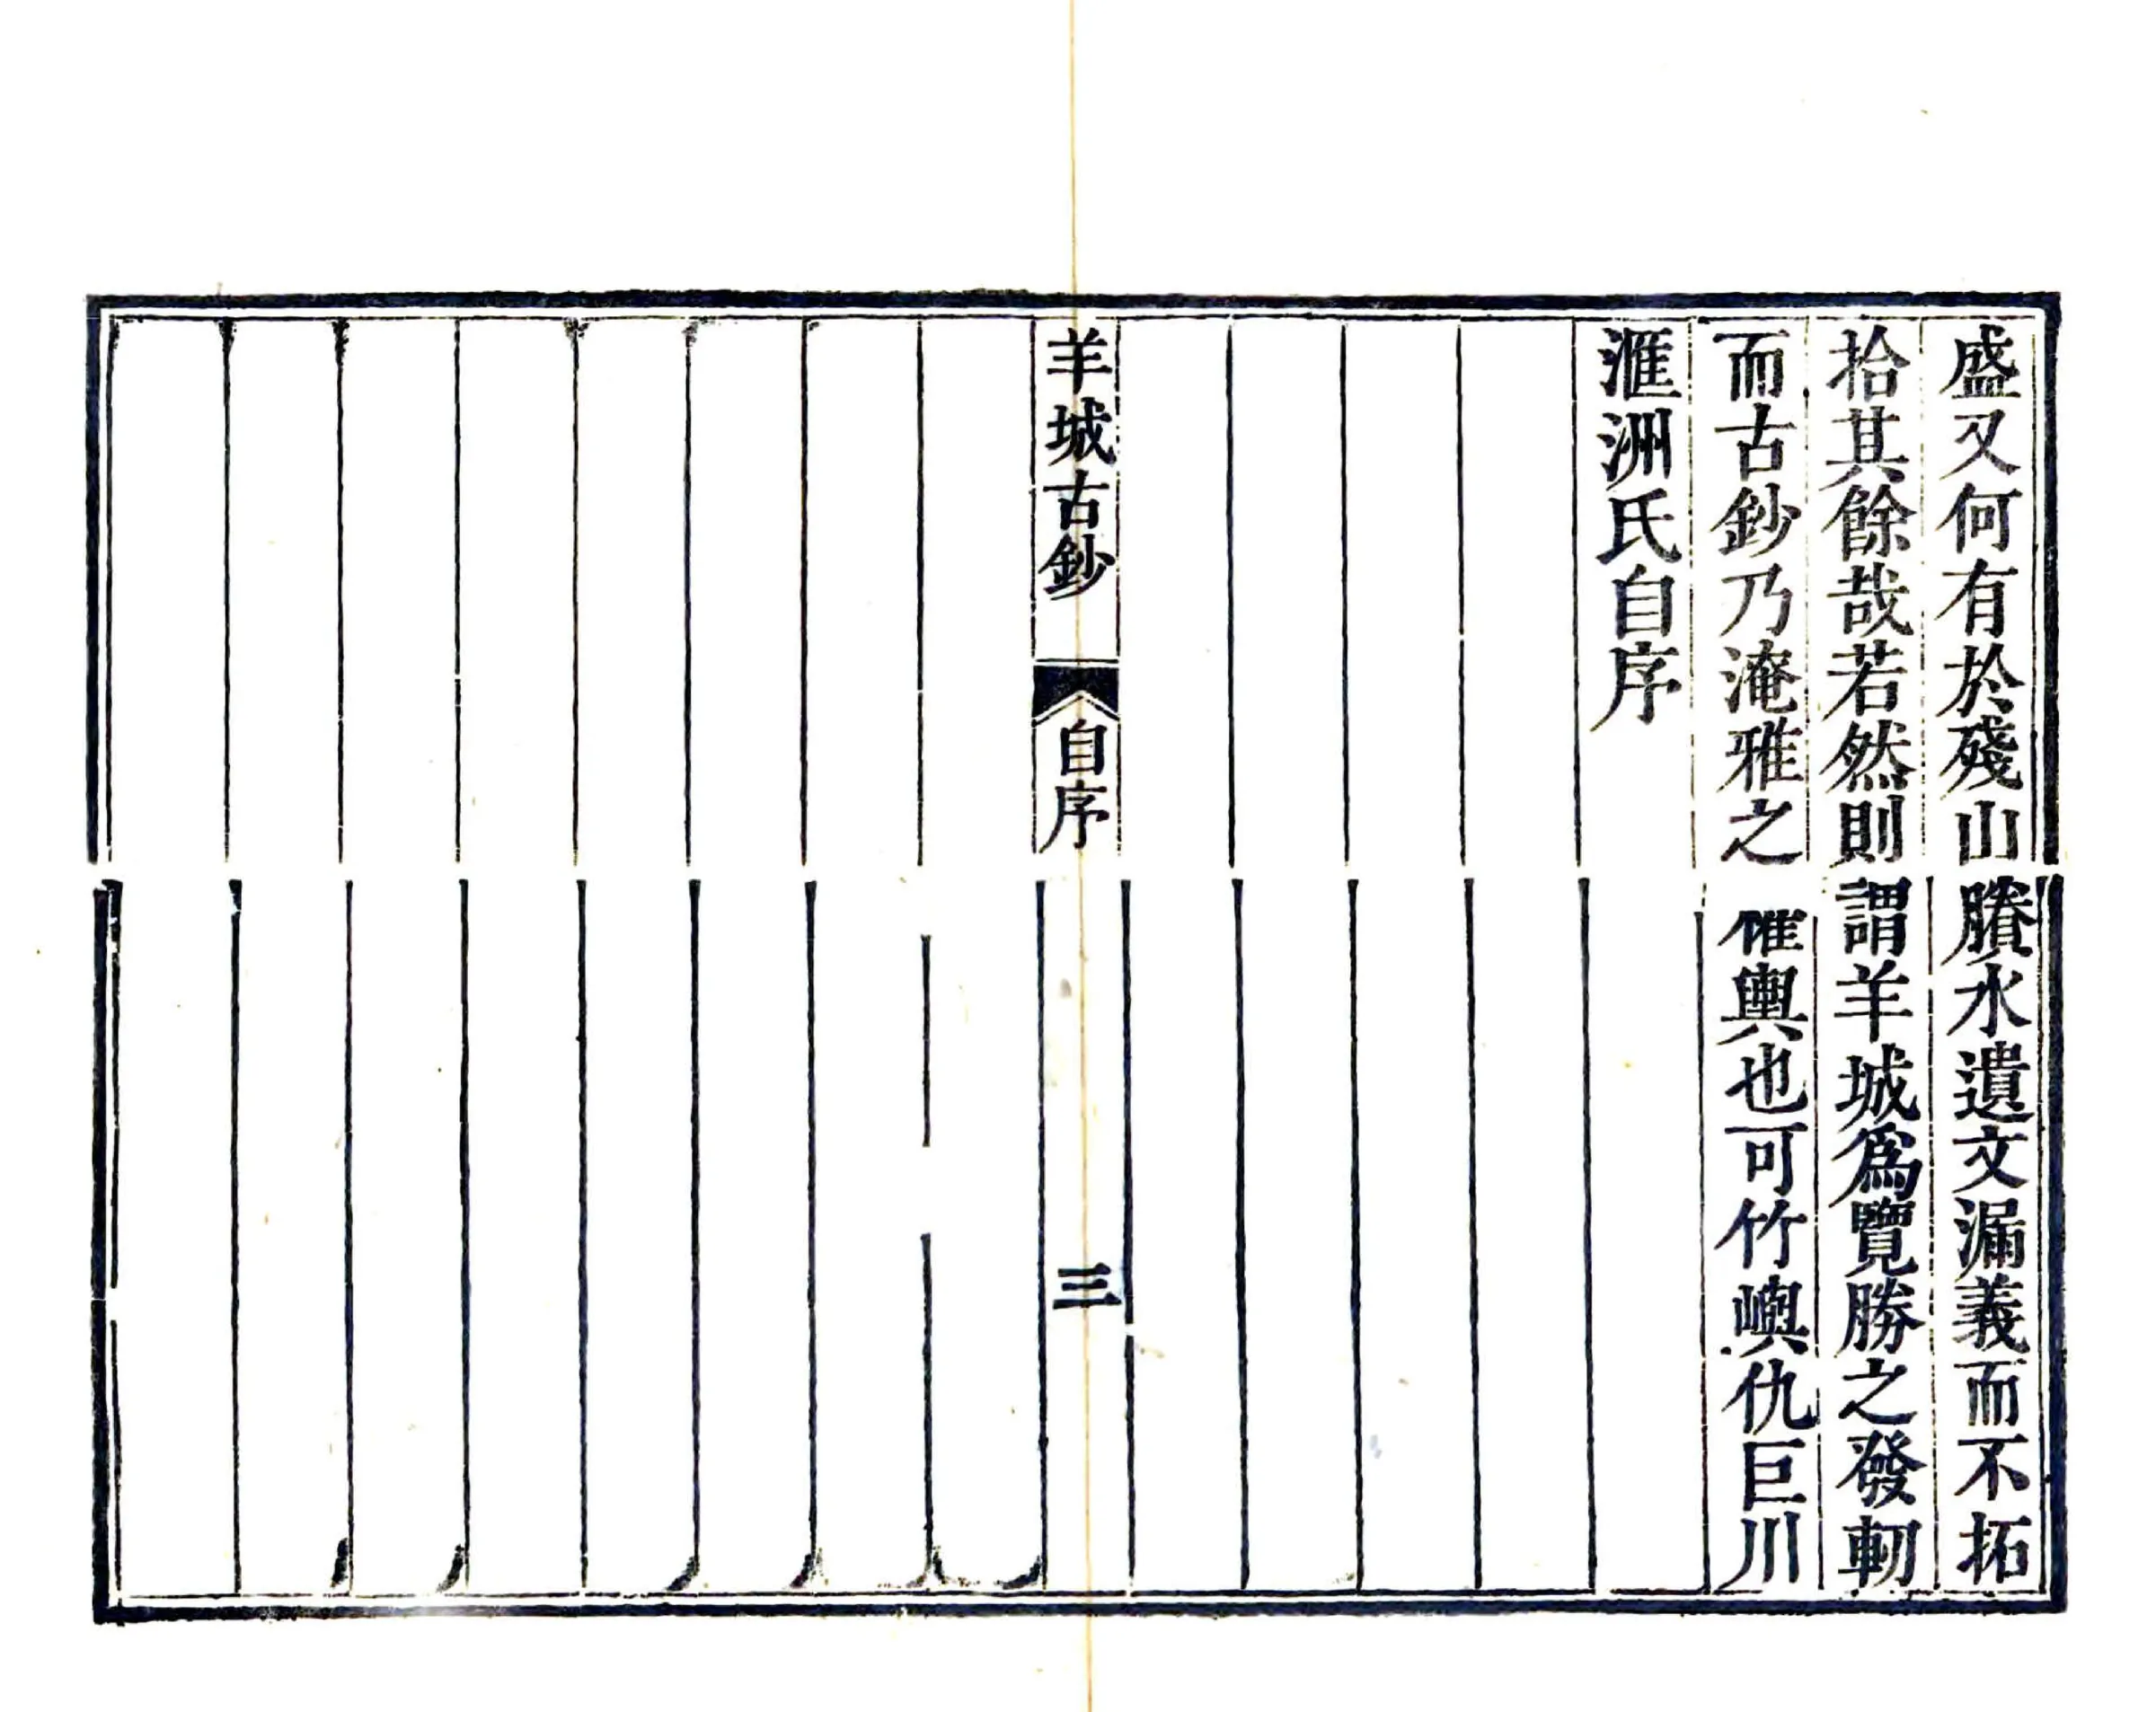 盛又何有於殘山賸水遺文漏義而不拓
拾其餘哉若然則謂羊城爲覽勝之發軔
而古鈔乃淹雅之權輿也可竹嶼仇巨川
滙洲氏自序
羊城古鈔 自序 三